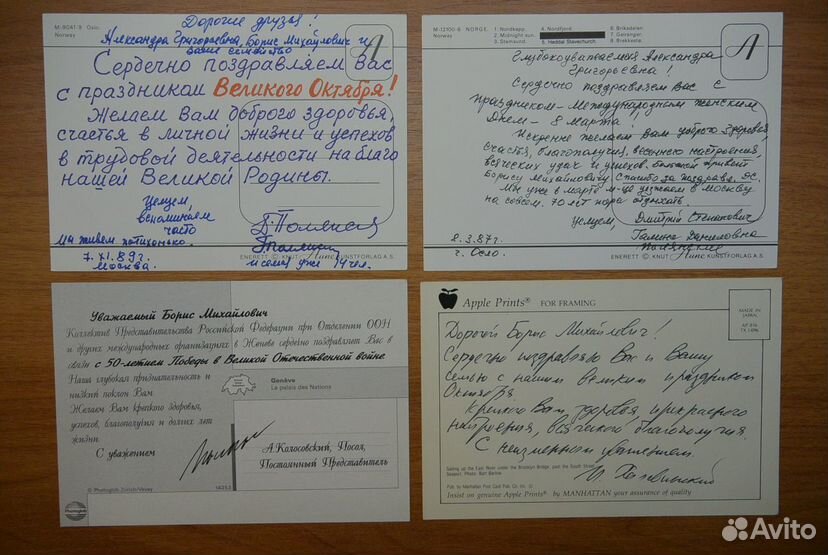 M-9041-9 Oslo,
Norway
Дорогие друзья!
Александра Григорьевна, Борис Михайлович и
ваше семейство
A
Сердечно поздравляем Вас
с праздником Великого Октября!
Желаем Вам доброго здоровья,
счастья в личной жизни и успехов
в трудовой деятельности на благо
нашей Великой Родины.
Целуем,
вспоминаем
часто
Мы живем потихонько.
7.XI.89г.
Москва.
ENERETT © KNUT Aune KUNSTFORLAG A.S.
M-12100-6 NORGE.
Norway
1: Nordkapp.
2: Midnight sun.
3: Stamsund.
4: Nordfjord.
5: Heddal Stavechurch.
6: Briksdalen.
7: Geiranger.
8: Brekkestø.
A
Глубокоуважаемая Александра
Григорьевна!
Сердечно поздравляем Вас с
праздником – Международным женским
Днем – 8 Марта!
Искренне желаем Вам доброго здоровья
счастья, благополучия, весеннего настроения,
всяческих удач и успехов. Большой привет
Борису Михайловичу. Спасибо за поздравл.
Мы уже в марте м-це уезжаем в Москву
на совсем. 70 лет пора отдыхать.
Целуем, Дмитрий Степанович,
Галина Даниловна
8.3.87г.
г. Осло.
ENERETT © KNUT Aune KUNSTFORLAG A.S.
Уважаемый Борис Михайлович
Коллектив Представительства Российской Федерации при Отделении ООН
и других международных организациях в Женеве сердечно поздравляет Вас в
связи с 50-летием Победы в Великой Отечественной войне
Наша глубокая признательность и
низкий поклон Вам.
Желаем Вам крепкого здоровья,
успехов, благополучия и долгих лет
жизни.
С уважением
Genève
Le palais des Nations
А.Колосовский, Посол,
Постоянный Представитель
© Photoglob Zürich/Vevey
Apple Prints® FOR FRAMING
MADE IN
JAPAN
Дорогой Борис Михайлович!
Сердечно поздравляю Вас и Вашу
семью с нашим великим праздником
Октября.
Крепкого Вам здоровья, прекрасного
настроения, всяческого благополучия.
С неизменным уважением.
Sailing up the East River under the Brooklyn Bridge, past the South Street
Seaport. Photo: Bart Barlow
Pub. by Manhattan Post Card Pub. Co. Inc.
Insist on genuine Apple Prints® by MANHATTAN your assurance of quality
Avito